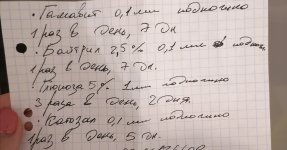 • Гамавит 0,1 мл подкожно
1 раз в день, 7 дн
• Байтрил 2,5% 0,1 мл
1 раз в день, 7 дн.
• Глюкоза 5% 1 мл подкожно
3 раза в день, 2 дня.
• Катозал 0,1 мл подкожно
1 раз в день, 5 дн.